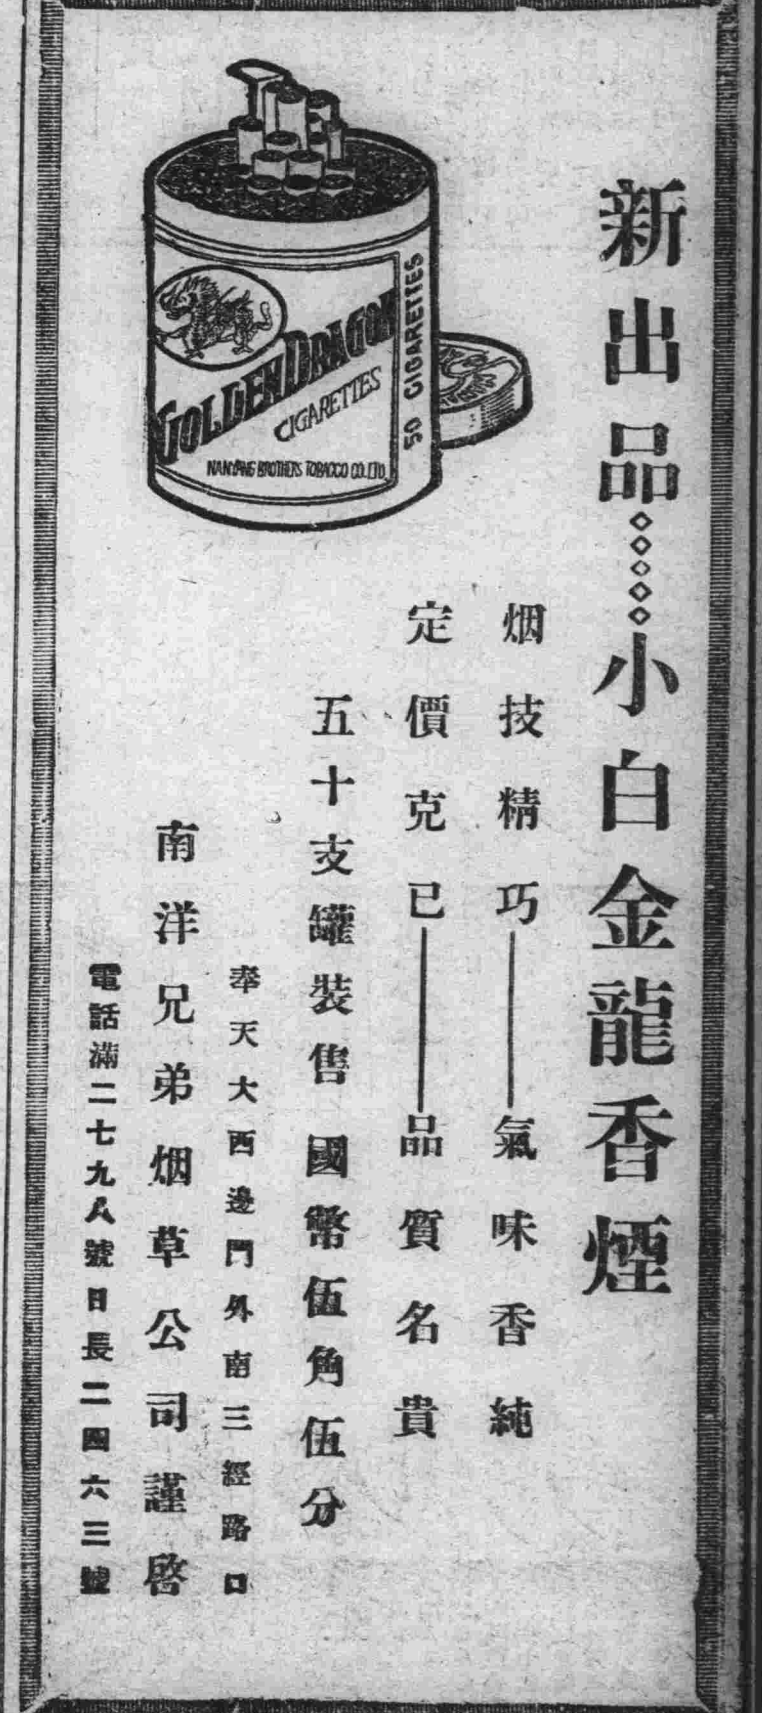 新出品◇◇◇◇◇小白金龍香煙
烟技精巧——氣味香純
定價克已——品質名貴
五十支罐裝售 國幣伍角伍分
奉天大西邊門外南三經路口
南洋兄弟烟草公司謹啓
電話滿二七九八號日長二四六三號
GOLDEN DRAGON
CIGARETTES
NANYANG BROTHERS TOBACCO CO. LTD.
50 CIGARETTES